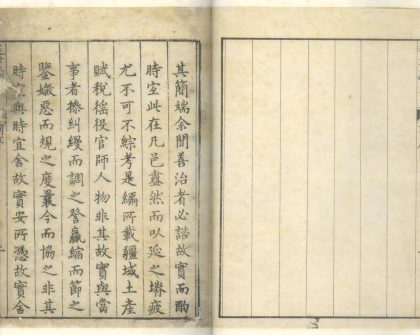 其簡端余聞善治者必諮故實而酌
時宜此在凡邑盡然而以延之堾疲
尤不可不綜考是編所載疆域土產
賦稅徭役官師人物非其故實與當
事者撩糾縵而調之詧贏縮而節之
鑒媺惡而規之度曩今而協之非其
時宜與時宜舍故實安所憑故實舍